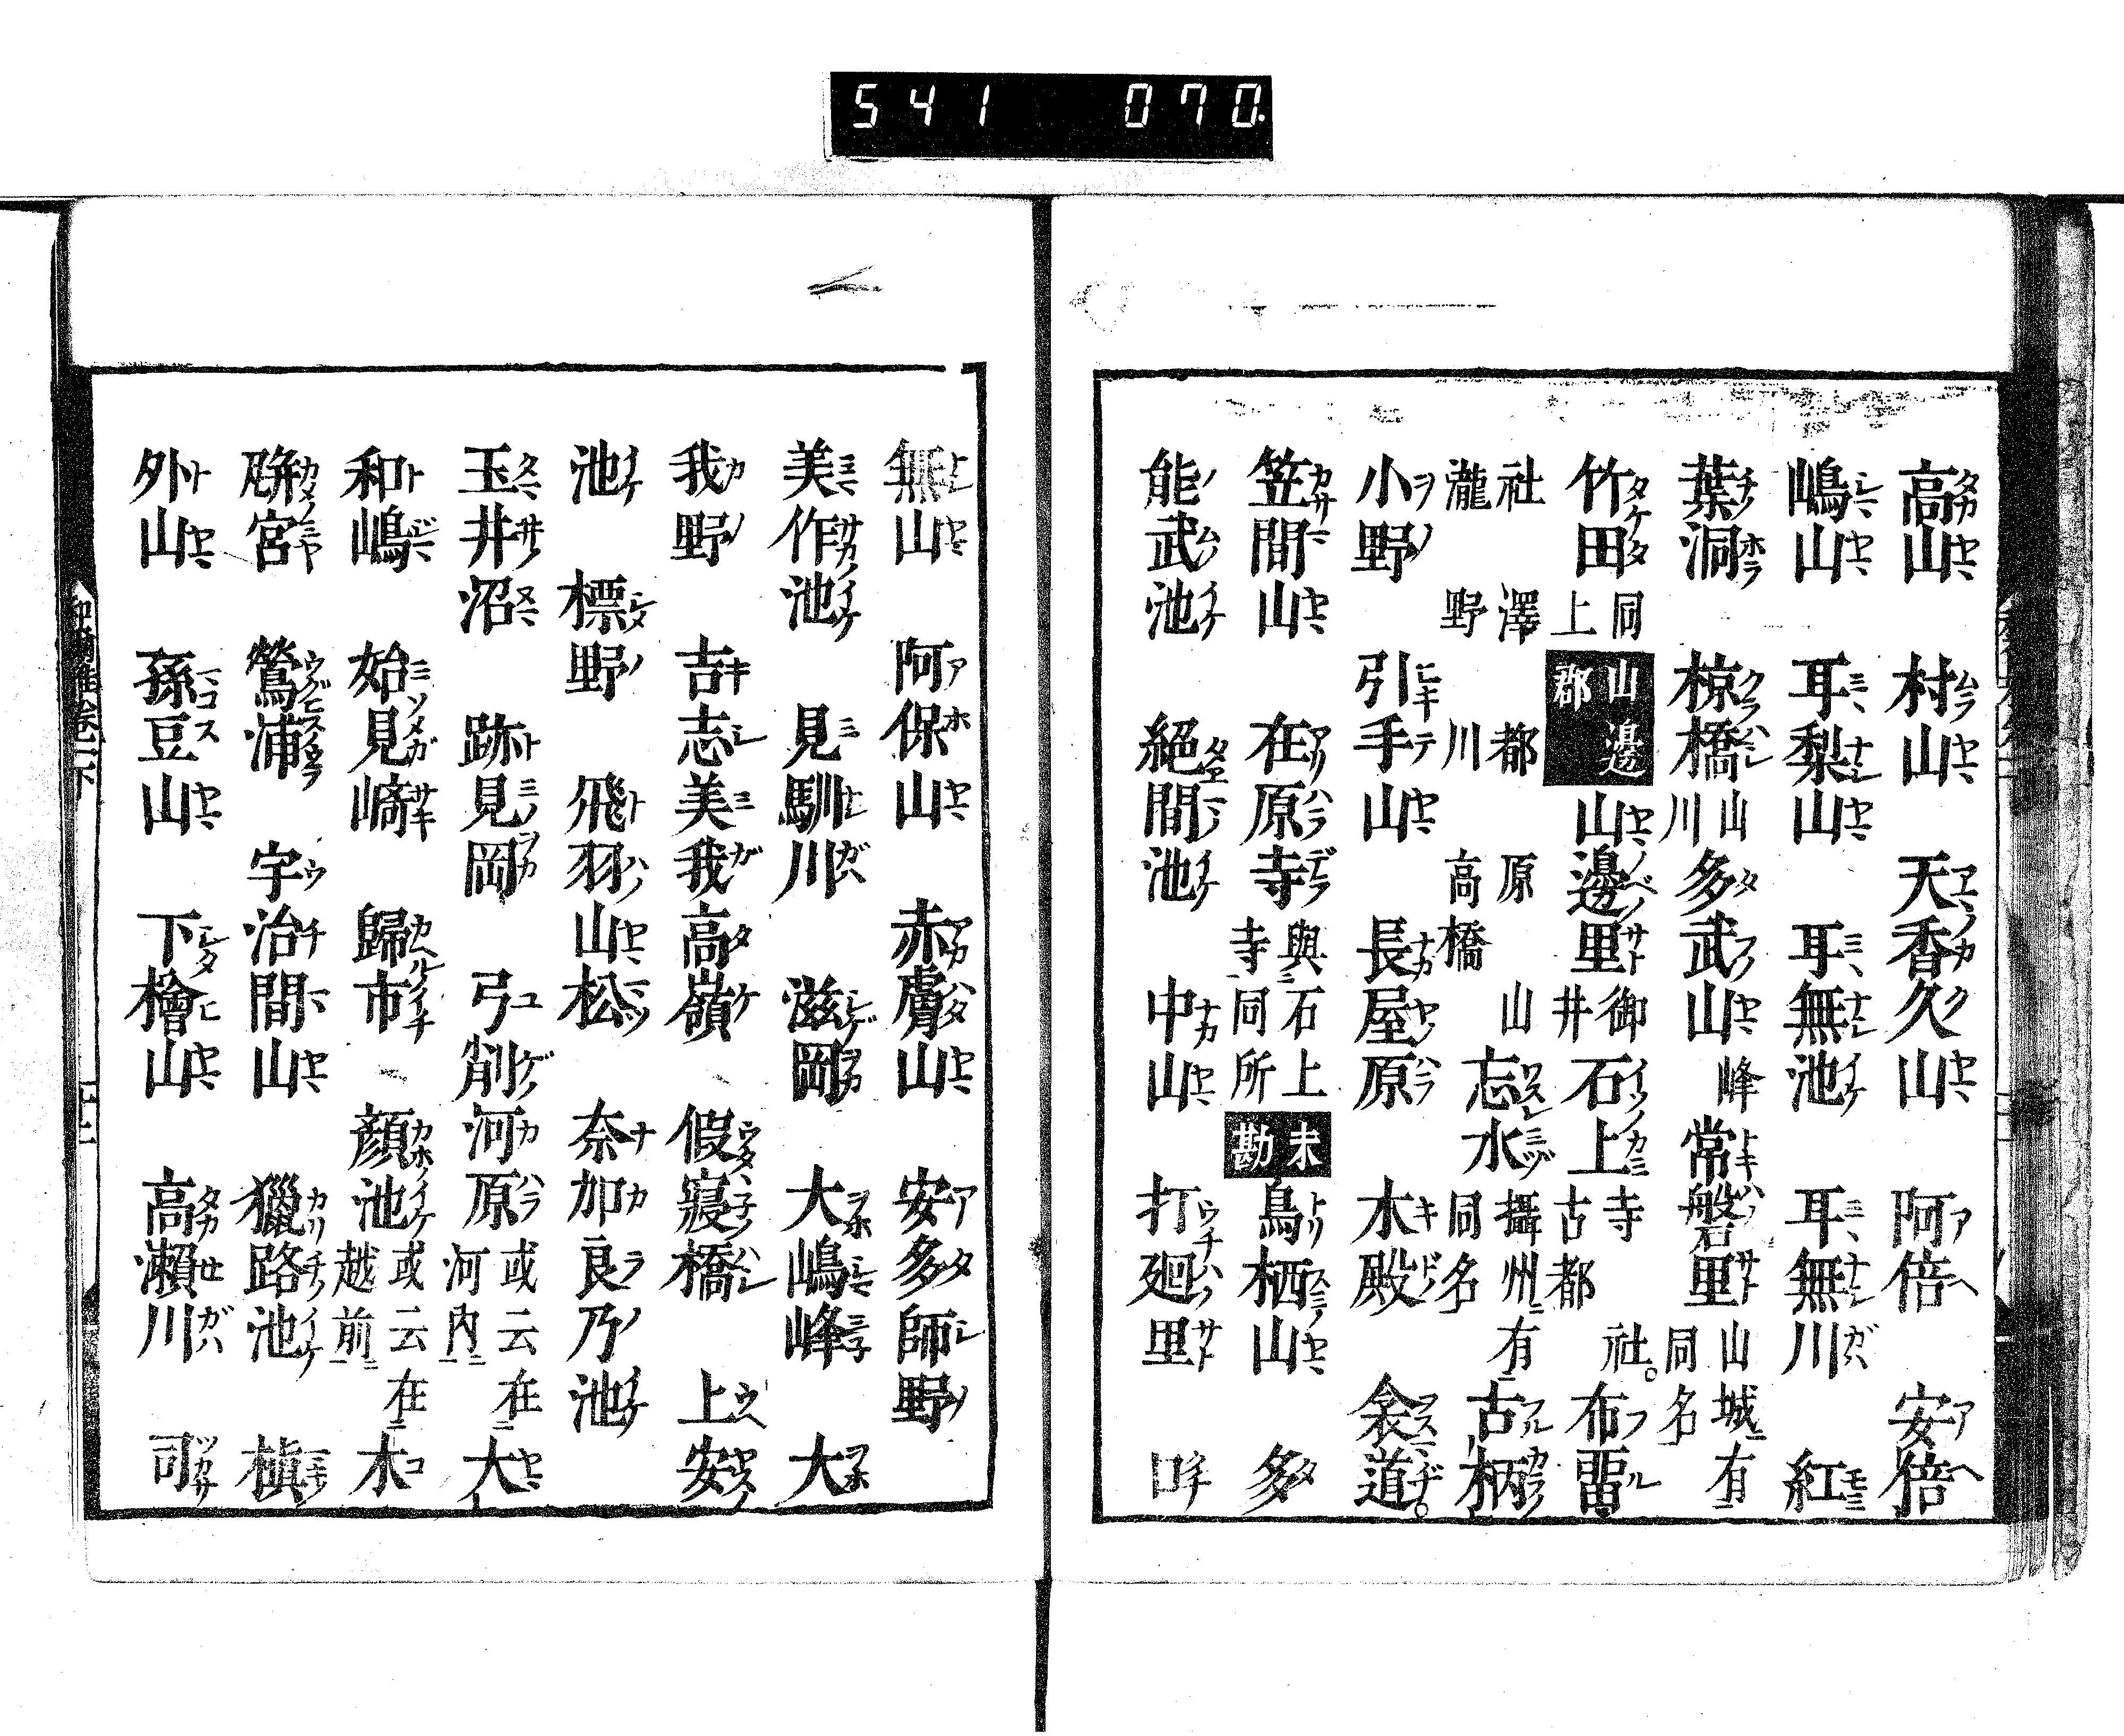 541 070
高山 村山 天香久山 阿倍 安倍
嶋山 耳梨山 耳無池 耳無川 紅
葉洞 椋橋山川 多武山峰 常磐里山城ニ有同名
竹田同上 山邊郡 山邊里御井 石上寺社古都 布畱
社澤都原山瀧野川高橋 忘水攝州ニ有同名 古柄
小野 引手山 長屋原 木殿 衾道
笠間山 在原寺與石上寺同所 未勘 鳥栖山 多
能武池 絕間池 中山 打廻里 口
無山 阿保山 赤膚山 安多師野
美作池 見馴川 滋岡 大嶋峰 大
我野 吉志美我高嶺 假寢橋 上安
池 標野 飛羽山松 奈加良乃池
玉井沼 跡見岡 弓削河原或云在河内 大
和嶋 始見崎 歸市 顏池或云在越前 木
甁宮 鶯浦 宇治間山 獵路池 槇
外山 孫豆山 下檜山 高瀨川 司